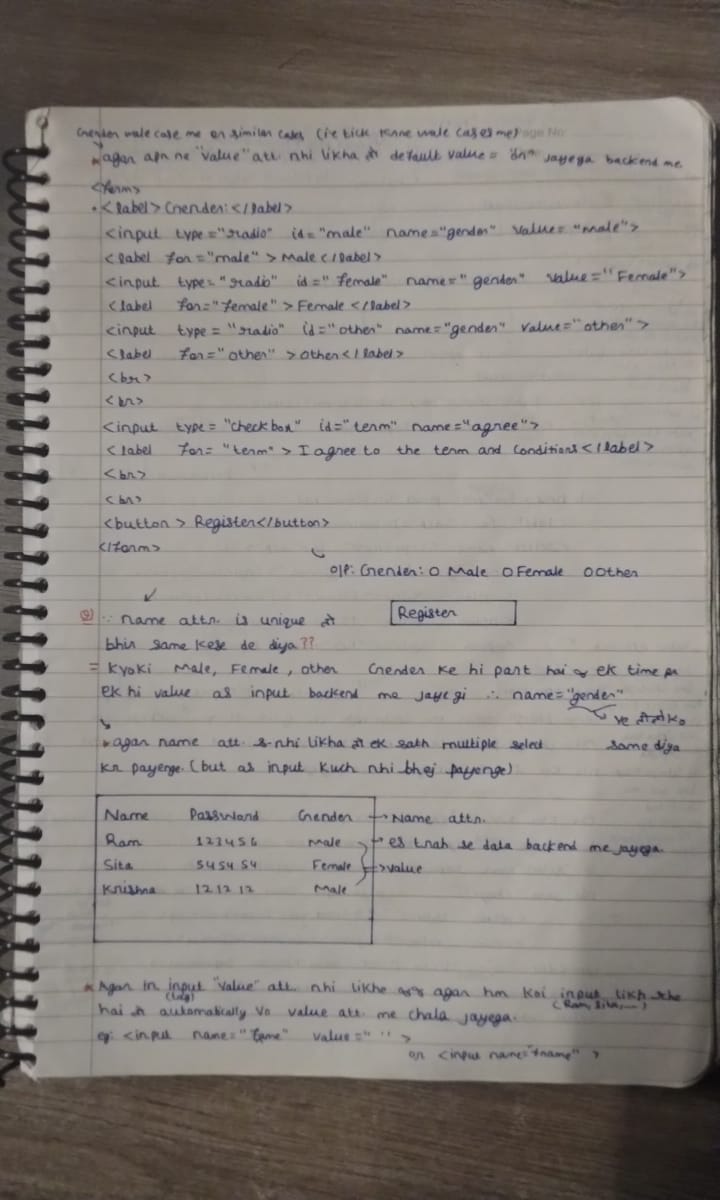 Gender wale case me or similar cases (i.e tick karne wale cases me) Page No
* agar apn ne "value" att. nhi likha तो default value = "on" jayega backend me
<form>
• <label> Gender: </label>
<input type="radio" id="male" name="gender" value="male">
<label for="male"> Male </label>
<input type="radio" id="female" name="gender" value="Female">
<label for="female"> Female </label>
<input type="radio" id="other" name="gender" value="other">
<label for="other"> other </label>
<br>
<br>
<input type="checkbox" id="term" name="agree">
<label for="term"> I agree to the term and conditions </label>
<br>
<br>
<button> Register </button>
</form>
O/P: Gender: O Male O Female O Other
Register
Q) ∵ name attr. is unique तो
bhir same kese de diya??
= Kyoki Male, Female, other Gender ke hi part hai & ek time pr
ek hi value as input backend me jayegi ∴ name="gender"
ye तीनो ko
same diya
* agar name att. nhi likha तो ek sath multiple select
kr payenge. (but as input kuch nhi bhej payenge)
Name Password Gender → Name attr.
Ram 123456 Male → es trah se data backend me jayega.
Sita 545454 Female → value
Krishna 121212 Male
* Agar in input "value" att. nhi likhe और agar hm koi input likh rhe
(tag) (Ram, Sita, ...)
hai तो automatically vo value att. me chala jayega.
eg: <input name="fname" value=" ">
or <input name="fname">